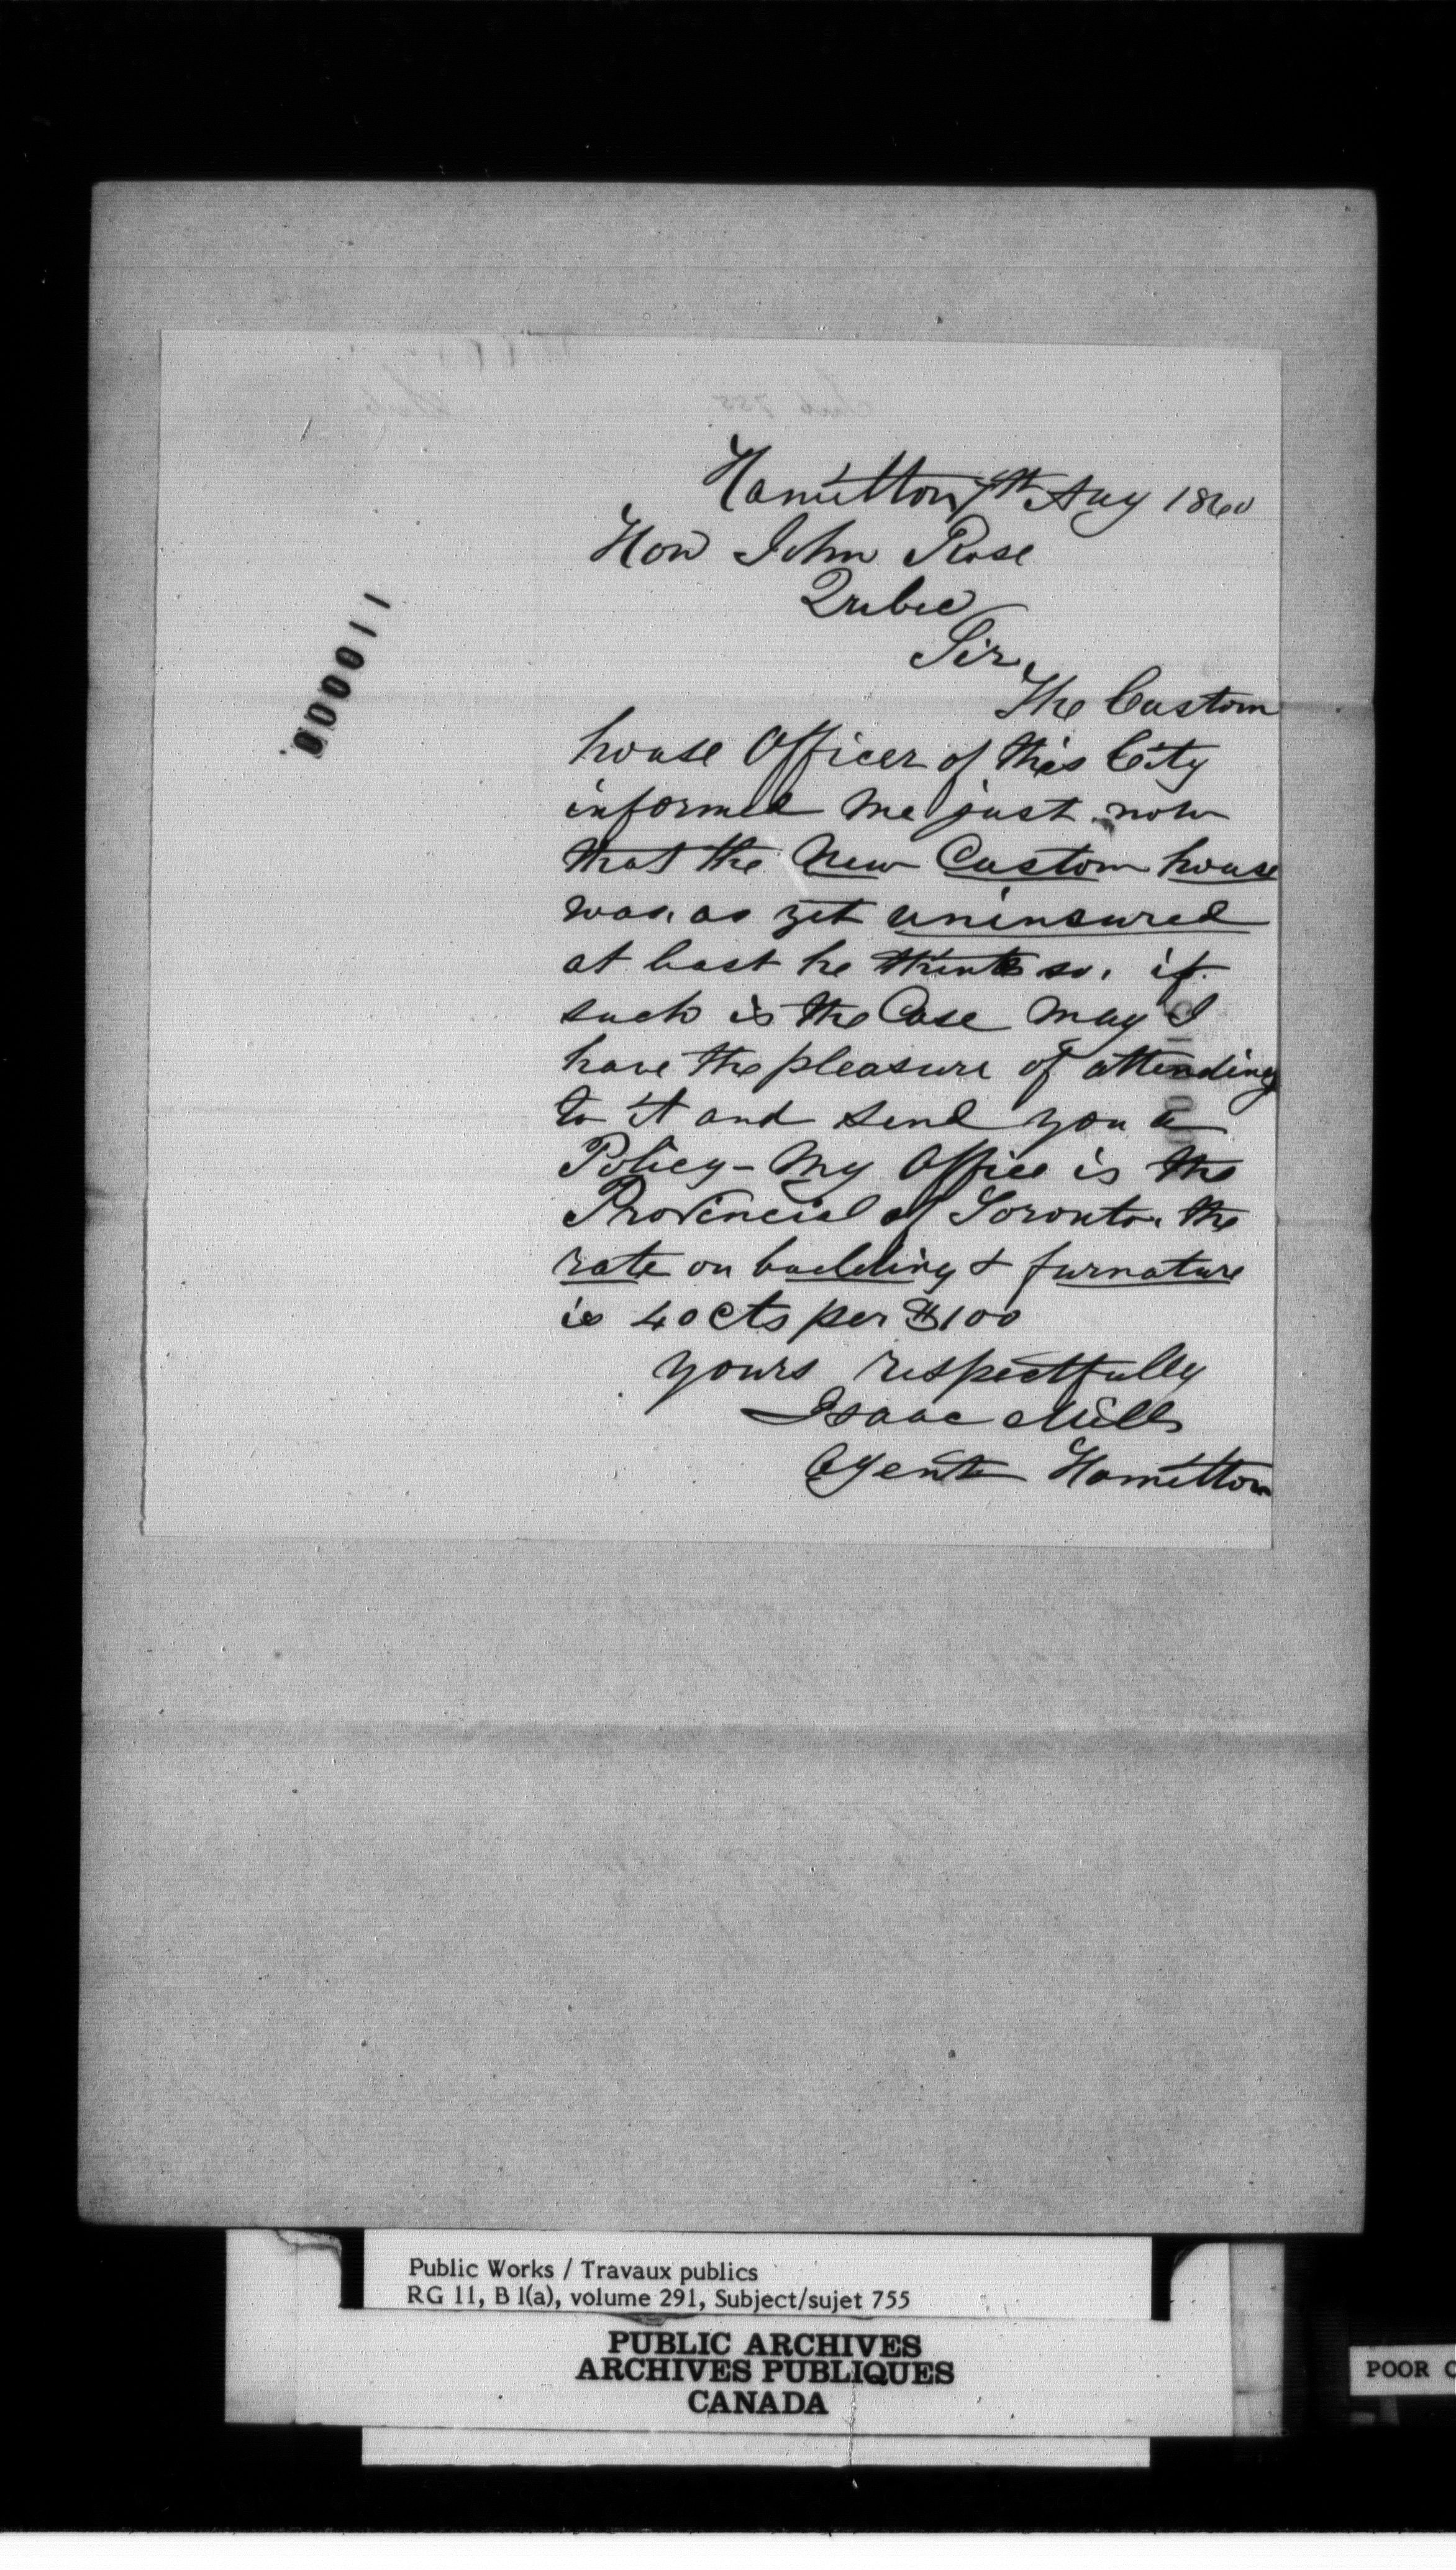 Hamilton 7th Aug 1860
Hon John Rose
Quebec
Sir,
The Custom
house Officer of this City
informed me just now
that the New Custom house
was as yet uninsured
at least he thinks so. if
such is the Case May I
have the pleasure of attending
to it and send you a
Policy - My Office is the
Provincial of Toronto. the
rate on building & furnature
is 40 cts per $100
yours respectfully
Isaac Mills
Agent Hamilton
000011
Public Works / Travaux publics
RG 11, B 1(a), volume 291, Subject/sujet 755
PUBLIC ARCHIVES
ARCHIVES PUBLIQUES
CANADA
POOR